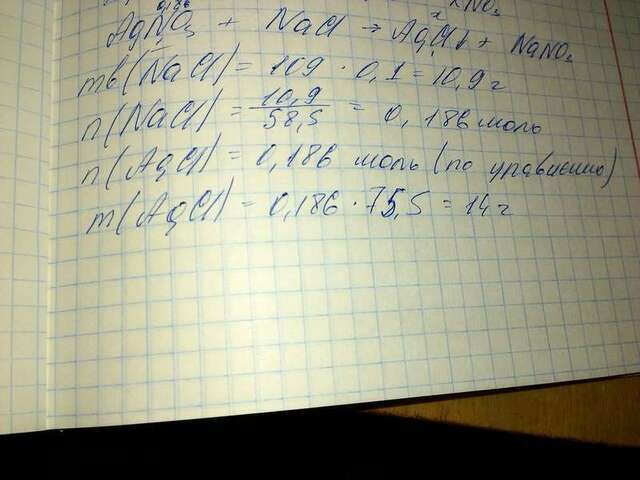 KNO₃
AgNO₃ + NaCl → AgCl↓ + NaNO₃
mв(NaCl) = 109 · 0,1 = 10,9 г
n(NaCl) = 10,9 / 58,5 = 0,186 моль
n(AgCl) = 0,186 моль (по уравнению)
m(AgCl) = 0,186 · 75,5 = 14 г